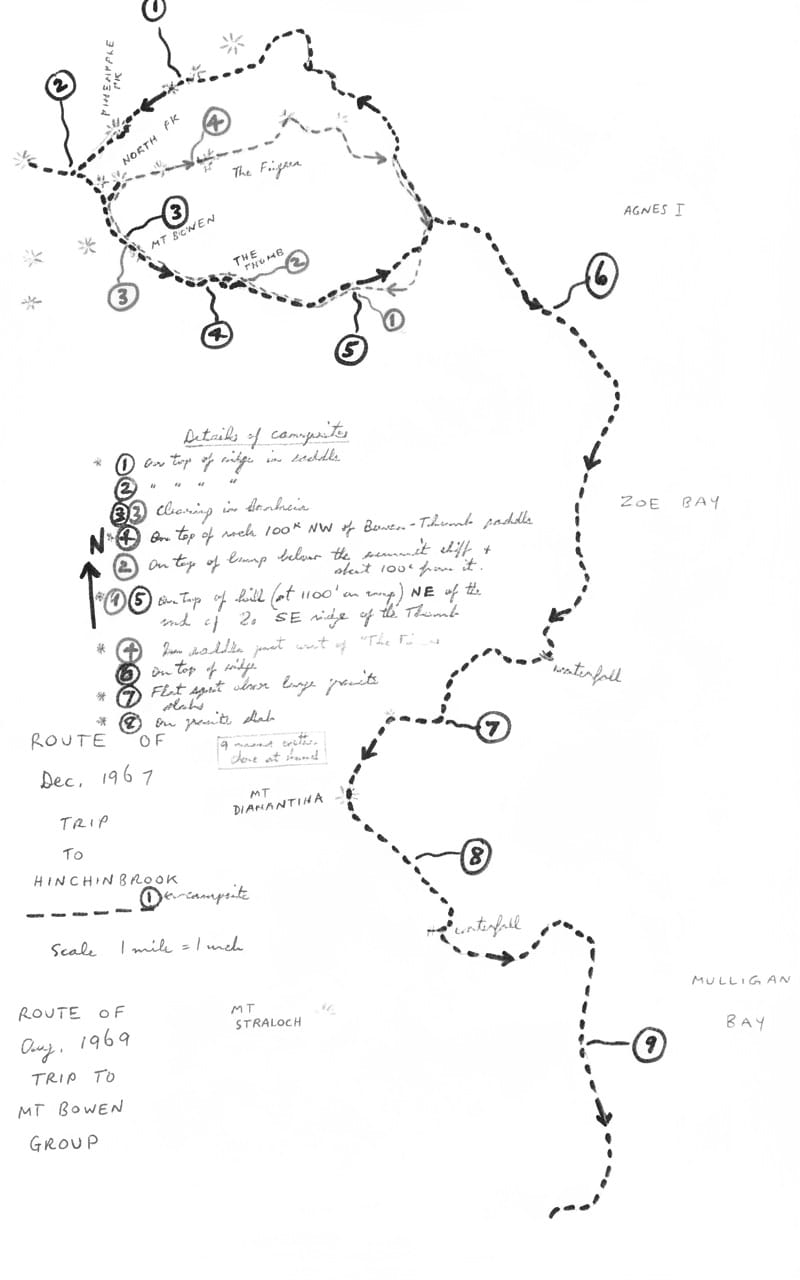 1
2
PINEAPPLE
PK
NORTH PK
4
The Fingers
3
MT BOWEN
THE
THUMB
2
3
4
1
5
AGNES I
6
Details of campsites
* 1 On top of ridge in saddle
2 " " " "
3 3 Clearing in
* 4 On top of rock 100x NW of Bowen-Thumb saddle
2 On top of lump below the summit cliff +
about 100x from it.
* 1 5 On top of hill (at 1100' on map) NE of the
end of SE ridge of the Thumb
* 4 In saddle just west of "The
6 On top of ridge
* 7 Flat spot above large granite
slabs
* 8 On granite slab
N
ZOE BAY
waterfall
7
ROUTE OF
Dec, 1967
TRIP
TO
HINCHINBROOK
1 ← campsite
Scale 1 mile = 1 inch
9
close at hand
MT
DIAMANTINA
8
waterfall
MULLIGAN
BAY
9
ROUTE OF
Aug, 1969
TRIP TO
MT BOWEN
GROUP
MT
STRALOCH